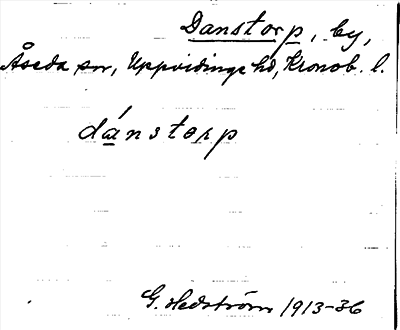 Danstorp, by,
Åseda sn, Uppvidinge hd, Kronob. l.
dánstorp
G. Hedström 1913-36